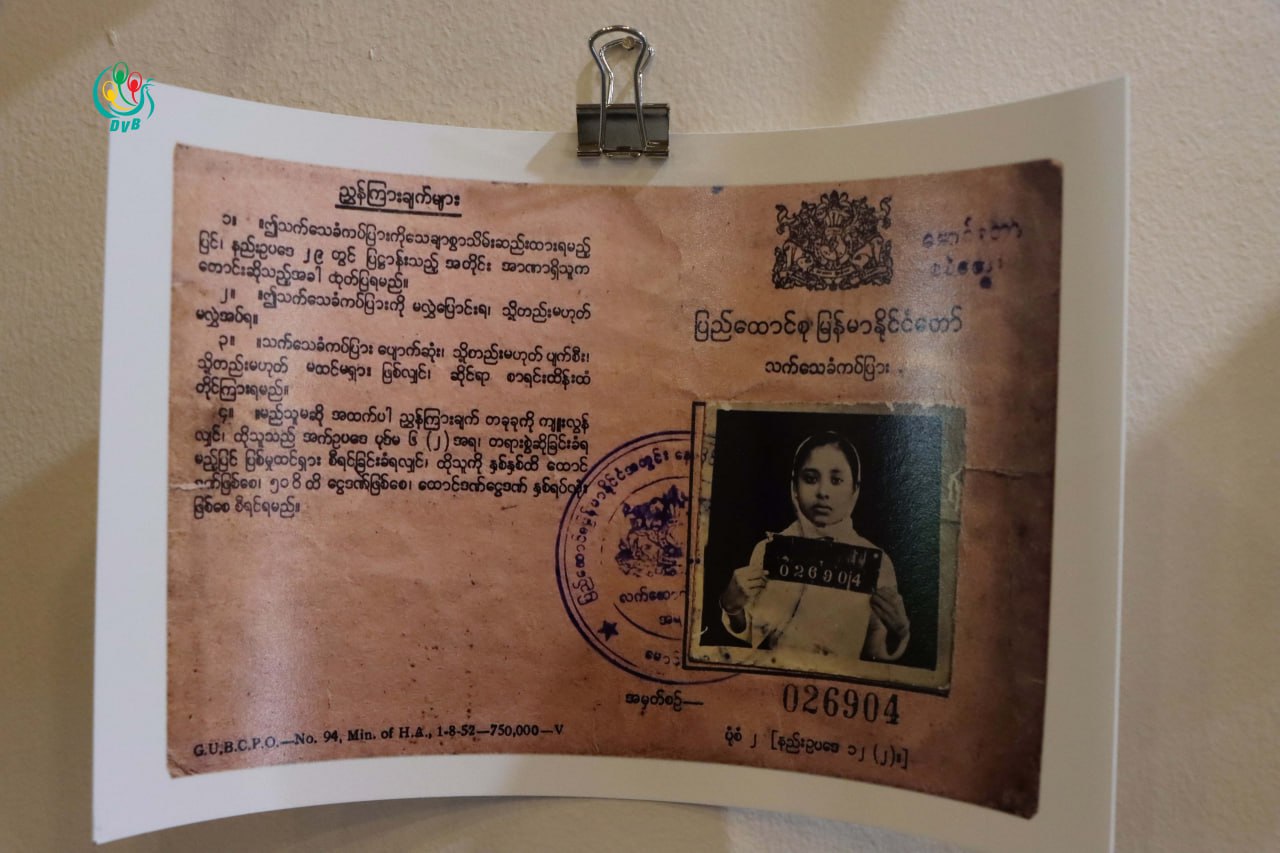 DVB
ညွှန်ကြားချက်များ
၁။ ။ဤသက်သေခံကပ်ပြားကိုသေချာစွာသိမ်းဆည်းထားရမည့်
ပြင်၊ နည်းဥပဒေ ၂၉ တွင် ပြဋ္ဌာန်းသည့် အတိုင်း အာဏာရှိသူက
တောင်းဆိုသည့်အခါ ထုတ်ပြရမည်။
၂။ ။ဤသက်သေခံကပ်ပြားကို မလွှဲပြောင်းရ၊ သို့တည်းမဟုတ်
မလွှဲအပ်ရ။
၃။ ။သက်သေခံကပ်ပြား ပျောက်ဆုံး၊ သို့တည်းမဟုတ် ပျက်စီး၊
သို့တည်းမဟုတ် မထင်မရှား ဖြစ်လျှင်၊ ဆိုင်ရာ စာရင်းထိန်းထံ
တိုင်ကြားရမည်။
၄။ ။မည်သူမဆို အထက်ပါ ညွှန်ကြားချက် တခုခုကို ကျူးလွန်
လျှင်၊ ထိုသူသည် အက်ဥပဒေ ပုဒ်မ ၆ (၂) အရ၊ တရားစွဲဆိုခြင်းခံရ
မည့်ပြင် ပြစ်မှုထင်ရှား စီရင်ခြင်းခံရလျှင်၊ ထိုသူကို နှစ်နှစ်ထိ ထောင်
ဒဏ်ဖြစ်စေ၊ ၅၀၀ိ ထိ ငွေဒဏ်ဖြစ်စေ၊ ထောင်ဒဏ်ငွေဒဏ် နှစ်ရပ်လုံး
ဖြစ်စေ စီရင်ရမည်။
G.U.B.C.P.O.—No. 94, Min. of H.A., 1-8-52—750,000—V
ပြည်ထောင်စု မြန်မာနိုင်ငံတော်
သက်သေခံကပ်ပြား
ပြည်ထောင်စုမြန်မာနိုင်ငံအတွင်း
026904
အမှတ်စဉ်— 026904
ပုံစံ ၂ [နည်းဥပဒေ ၁၂ (၂)။]